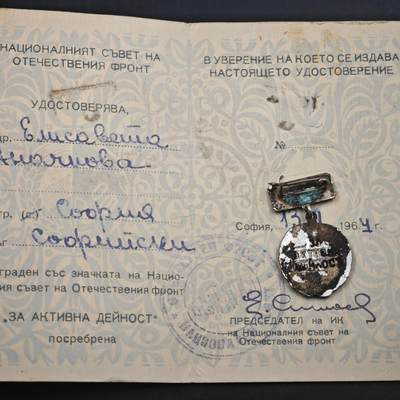 НАЦИОНАЛНИЯТ СЪВЕТ НА
ОТЕЧЕСТВЕНИЯ ФРОНТ
УДОСТОВЕРЯВА,
др. Елисавета
гр. (с) София
Софийски
граден със значката на Нацио-
ния съвет на Отечествения фронт
„ЗА АКТИВНА ДЕЙНОСТ“
посребрена
В УВЕРЕНИЕ НА КОЕТО СЕ ИЗДАВА
НАСТОЯЩЕТО УДОСТОВЕРЕНИЕ
№
София, 1964 г.
ПРЕДСЕДАТЕЛ НА ИК
на Националния съвет на
Отечествения фронт